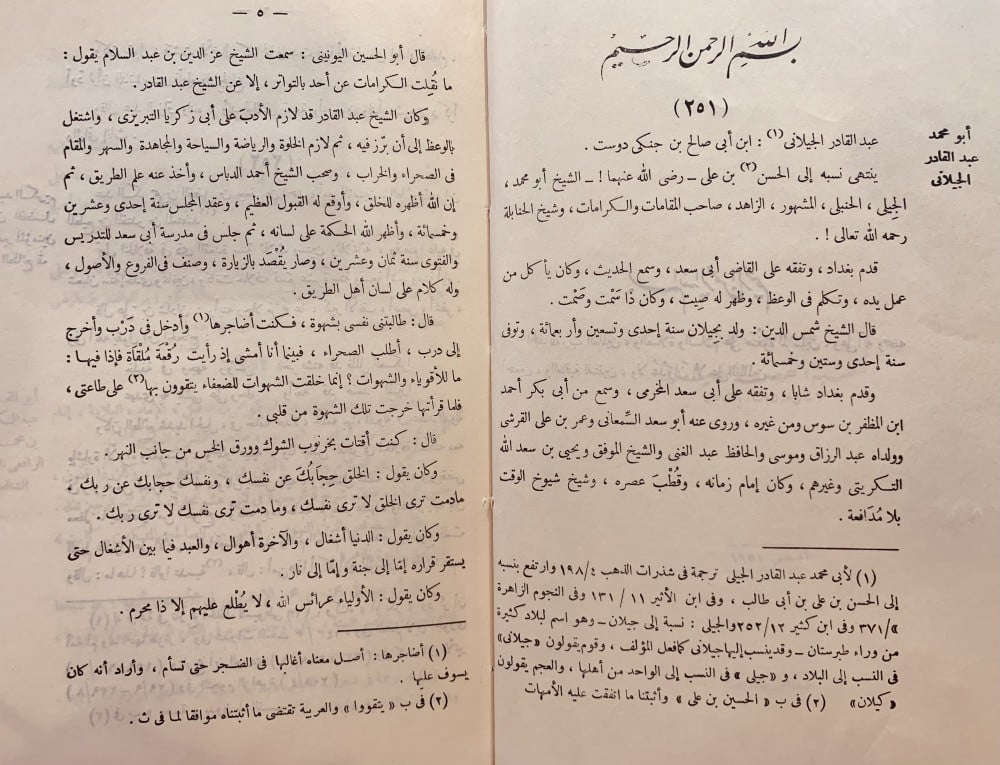 بسم الله الرحمن الرحيم
(٢٥١)
أبو محمد
عبد القادر
الجيلانى
عبد القادر الجيلانى (١) : ابن أبى صالح بن جنكى دوست .
ينتهى نسبه إلى الحسن (٢) بن على ـ رضى الله عنهما ! ـ الشيخ أبو محمد ،
الجِيلى ، الحنبلى ، المشهور ، الزاهد ، صاحب المقامات والكرامات ، وشيخ الحنابلة
رحمه الله تعالى ! .
قدم بغداد ، وتفقه على القاضى أبى سعد ، وسمع الحديث ، وكان يأكل من
عمل يده ، وتكلم فى الوعظ ، وظهر له صِيت ، وكان ذا سَمْت وصَمْت .
قال الشيخ شمس الدين : ولد بجيلان سنة إحدى وتسعين وأربعمائة ، وتوفى
سنة إحدى وستين وخمسمائة .
وقدم بغداد شابا ، وتفقه على أبى سعد المخرمى ، وسمع من أبى بكر أحمد
ابن المظفر بن سوس ومن غيره ، وروى عنه أبو سعد السِّمعانى وعمر بن على القرشى
وولداه عبد الرزاق وموسى والحافظ عبد الغنى والشيخ الموفق ويحيى بن سعد الله
التكريتى وغيرهم ، وكان إمام زمانه ، وقُطْبَ عصره ، وشيخ شيوخ الوقت
بلا مُدَافعة .
(١) لأبى محمد عبد القادر الجيلى ترجمة فى شذرات الذهب ١٩٨/٤ وارتفع بنسبه
إلى الحسن بن على بن أبى طالب ، وفى ابن الأثير ١١ / ١٣١ وفى النجوم الزاهرة
٣٧١/٥ وفى ابن كثير ٢٥٢/١٢ والجيلى : نسبة إلى جيلان ـ وهو اسم لبلاد كثيرة
من وراء طبرستان ـ وقد ينسب إليها جيلانى كما فعل المؤلف ، وقوم يقولون «جيلانى»
فى النسب إلى البلاد ، و «جيلى» فى النسب إلى الواحد من أهلها ، والعجم يقولون
«كيلان» (٢) فى ب «الحسين بن على» وأثبتنا ما اتفقت عليه الأمهات
ـ ٥ ـ
قال أبو الحسين اليونينى : سمعت الشيخ عز الدين بن عبد السلام يقول :
ما نُقِلت الكرامات عن أحد بالتواتر ، إلا عن الشيخ عبد القادر .
وكان الشيخ عبد القادر قد لازم الأدبَ على أبى زكريا التبريزى ، واشتغل
بالوعظ إلى أن برّز فيه ، ثم لازم الخلوة والرياضة والسياحة والمجاهدة والسهر والمقام
فى الصحراء والخراب ، وصحب الشيخ أحمد الدباس ، وأخذ عنه علم الطريق ، ثم
إن الله أظهره للخلق ، وأوقع له القبول العظيم ، وعقد المجلس سنة إحدى وعشرين
وخمسمائة ، وأظهر الله الحكمة على لسانه ، ثم جلس فى مدرسة أبى سعد للتدريس
والفتوى سنة ثمان وعشرين ، وصار يُقْصَد بالزيارة ، وصنف فى الفروع والأصول ،
وله كلام على لسان أهل الطريق .
قال : طالبتنى نفسى بشهوة ، فكنت أضاجرها (١) وأدخل فى دَرْب وأخرج
إلى درب ، أطلب الصحراء ، فبينما أنا أمشى إذ رأيت رُقْعَة مُلْقَاة فإذا فيها :
ما للأقوياء والشهوات ؟ إنما خلقت الشهوات للضعفاء يتقوون بها (٢) على طاعتى ،
فلما قرأتها خرجت تلك الشهوة من قلبى .
قال : كنت أقتات بخرنوب الشوك وورق الخس من جانب النهر .
وكان يقول : الخلق حِجَابُكَ عن نفسك ، ونفسك حجابك عن ربك .
مادمت ترى الخلق لا ترى نفسك ، وما دمت ترى نفسك لا ترى ربك .
وكان يقول : الدنيا أشغال ، والآخرة أهوال ، والعبد فيما بين الأشغال حتى
يستقر قراره إمّا إلى جنة وإمّا إلى نار .
وكان يقول : الأولياء عرائس الله ، لا يُطْلِع عليهم إلا ذا محرم .
(١) أضاجرها : أصل معناه أغالبها فى الضجر حتى تسأم ، وأراد أنه كان
يسوف عليها .
(٢) فى ب «يتقووا» والعربية تقتضى ما أثبتناه موافقا لما فى ث .